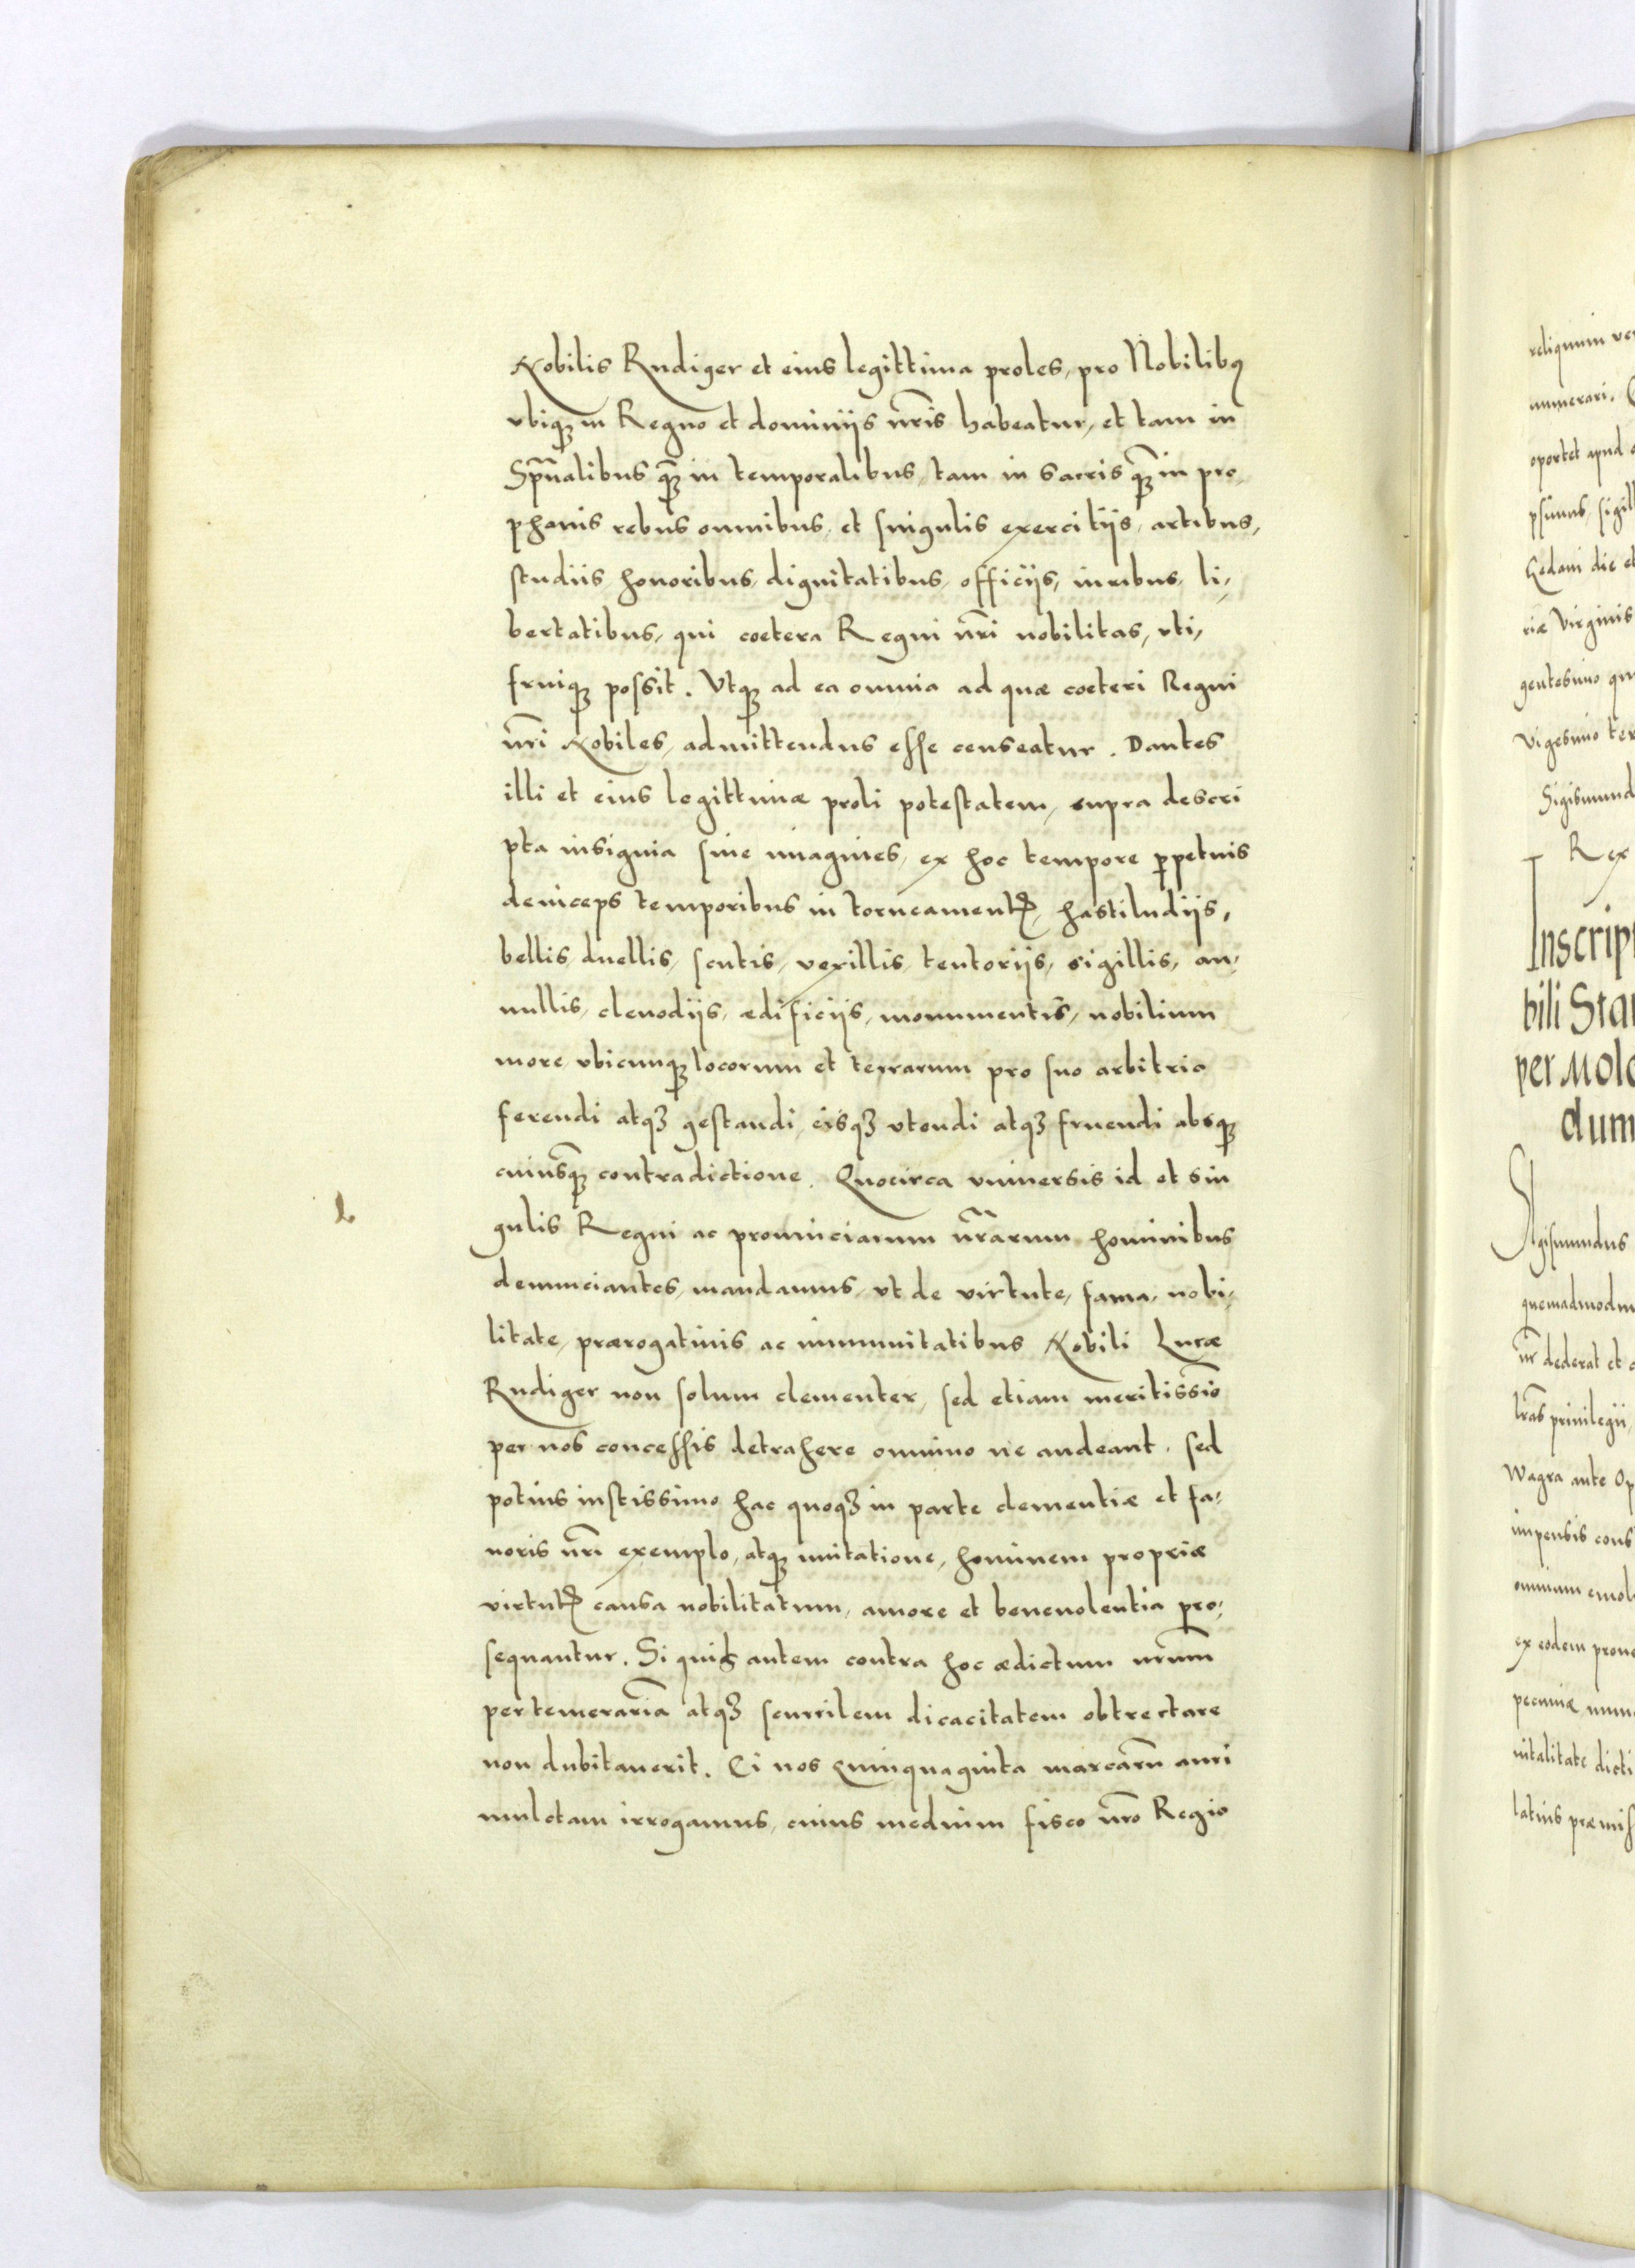 Nobilis Rudiger et eius legittima proles, pro Nobilibꝰ
vbiqꝫ in Regno et dominijs nr̃is habeatur, et tam in
Spũalibus qꝫ̃ in temporalibus, tam in sacris qꝫ̃ in pro,
phanis rebus omnibus, et singulis exercitijs, artibus,
studiis honoribus, dignitatibus, officijs, iuribus, li,
bertatibus, qui coetera Regni nr̃i nobilitas, vti,
fruiqꝫ possit. Vtqꝫ ad ea omnia ad quæ coeteri Regni
nr̃i Nobiles, admittendus esse censeatur. Dantes
illi et eius legittimæ proli potestatem, supra descri
pta insignia siue imagines, ex hoc tempore ꝑpetuis
deinceps temporibus in torneamentꝭ, hastiludijs,
bellis, duellis, scutis, vexillis, tentorijs, sigillis, an,
nullis, clenodijs, ædificijs, monumentis, nobilium
more, vbicunqꝫ locorum et terrarum pro suo arbitrio
ferendi atqꝫ gestandi, eisqꝫ vtendi atqꝫ fruendi absqꝫ
cuiusqꝫ̃ contradictione. Quocirca vniuersis id et sin
gulis Regni ac prouinciarum nr̃arum hominibus
denunciantes, mandamus, vt de virtute, fama, nobi,
litate, prærogatiuis ac immunitatibus Nobili Lucæ
Rudiger non solum clementer, sed etiam meritissĩo
per nos concessis detrahere omnino ne audeant, sed
potius iustissimo hac quoqꝫ in parte clementiæ et fa,
uoris nr̃i exemplo, atqꝫ imitatione, hominem propriæ
virtutꝭ causa nobilitatum, amore et beneuolentia pro,
sequantur. Si quis autem contra hoc ædictum nr̃um
per temerariã atqꝫ scurrilem dicacitatem obtrectare
non dubitauerit. Ei nos quinquaginta marcarũ auri
mulctam irrogamus, cuius medium fisco nr̃o Regio
reliquum
numerari.
oportet apud
riæ Virginis
Vigesimo
Rex
Inscrip
bili Sta
per Mol
dum
quemadmodum
nr̃ dederat et
lr̃as priuilegii
Wagra ante
impensis
omnium
ex eodem
pecuniæ
latius